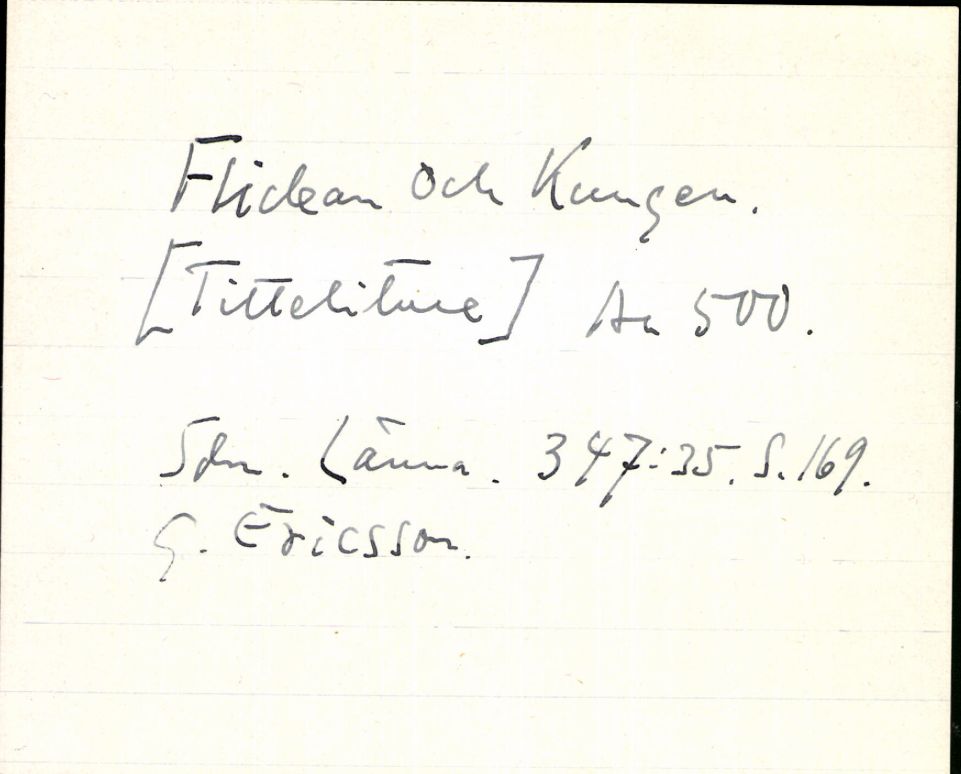 Flickan och Kungen.
[Titteliture] Aa 500.
Sdm. Länna. 347:35. S. 169.
G. Ericsson.